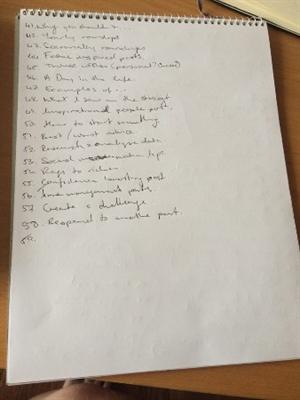 41. Why you shouldn't.
42. Yearly roundups
43. Seasonally roundups
44. Future inspired posts.
45.
46. A Day in the life.
47. Examples of...
48. What I saw on the
49. Inspirational people post.
50. How to start something
51. Best / worst advice
52. Research + analyse data
53. Social tips
54. Rags to riches
55. Confidence boosting post
56. Time management posts.
57. Create a challenge
58. Respond to another post.
59.